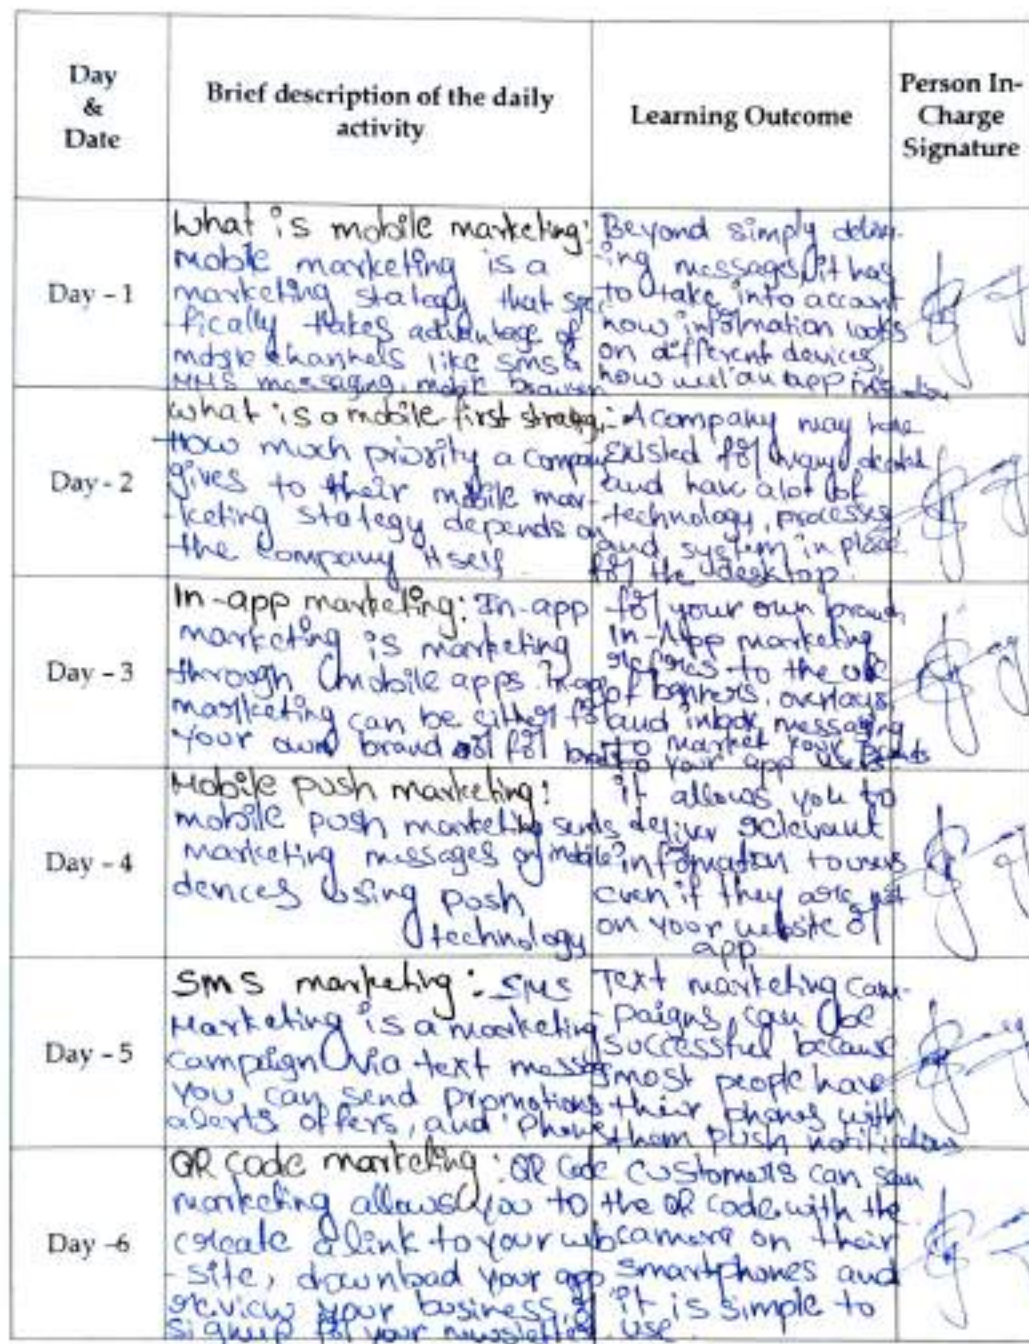 Day
&
Date
Brief description of the daily
activity
Learning Outcome
Person In-
Charge
Signature
Day - 1
What is mobile marketing:
mobile marketing is a
marketing stategy that spe
fically takes advantage of
mobile channels like sms &
MMS messaging, mobile
Beyond simply deliver-
-ing messages, it has
to take into account
how information looks
on different devices,
how well an app
Day - 2
What is a mobile first strategy:-
How much priority a company
gives to their mobile mar-
-keting stategy depends on
the company itself
A company may have
existed for many
and have a lot of
technology, processes
and system in place
for the desktop.
Day - 3
In-app marketing: In-app
marketing is marketing
through mobile apps. In app
marketing can be either for
your own brand or for
for your own brand,
In-App marketing
refires to the use
of banners, overlays,
and inbox messaging
to market your
to your app users
Day - 4
Mobile push marketing:
mobile push marketing sends
marketing messages on mobile
devices using push
technology
it allows you to
deliver relevant
information to users
even if they are not
on your website or
app
Day - 5
SMS marketing: SMS
Marketing is a marketing
campaign via text
you can send promotions
alerts offers, and
Text marketing cam-
-paigns can be
successful because
most people have
their phones with
them push
Day -6
QR Code marketing: QR Code
marketing allows you to
create a link to your web
-site, download your app
review your business, or
signup for your newsletter.
customers can scan
the QR code with the
camera on their
smartphones and
it is simple to
use.